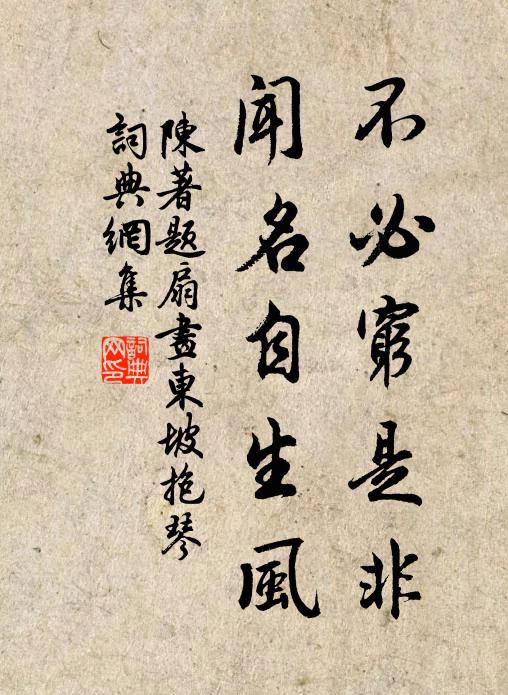 不必窮是非
聞名自生風
陳著題扇畫東坡抱琴
詞典網集
詞典網印